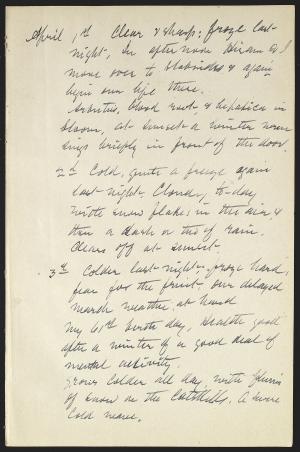 April 1st Clear & sharp; froze last
night, In after noon Hiram & I
move over to Slabsides & again
begin our life there.
Arbutus, blood root, & hepatica in
bloom, at sunset a winter wren
sings briefly in front of the door.
2d Cold, quite a freeze again
last night, Cloudy to-day
with snow flakes in the air, &
then a dash or two of rain.
Clears off at sunset.
3d Colder last night, froze hard,
fear for the fruit. Our delayed
march weather, at hand
My 61st birth day, Health good
after a winter of a good deal of
mental activity.
Grows colder all day with flurries
of snow on the Catskills. A severe
cold wave.